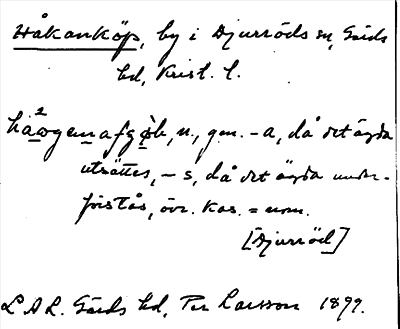 Håkanköp, by i Djurröds sn, Gärds
hd, Krist. l.
utsättes, -s, då det ägda under-
förstås, övr. kas. = nom.
[Djurröd]
L.A.L. Gärds hd, Per Larsson 1899.